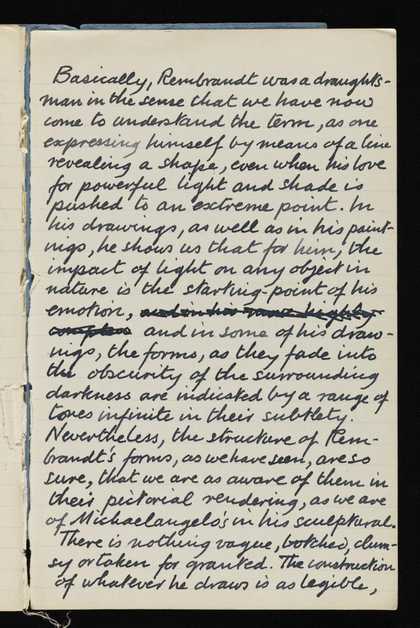 Basically, Rembrandt was a draughts-
man in the sense that we have now
come to understand the term, as one
expressing himself by means of a line
revealing a shape, even when his love
for powerful light and shade is
pushed to an extreme point. In
his drawings, as well as in his paint-
ings, he shows us that for him, the
impact of light on any object in
nature is the starting-point of his
emotion, and in his more highly
complex and in some of his draw-
ings, the forms, as they fade into
the obscurity of the surrounding
darkness are indicated by a range of
tones infinite in their subtlety.
Nevertheless, the structure of Rem-
brandt's forms, as we have seen, are so
sure, that we are as aware of them in
their pictorial rendering, as we are
of Michaelangelo's in his sculptural.
There is nothing vague, botched, clum-
sy or taken for granted. The construction
of whatever he draws is as legible,